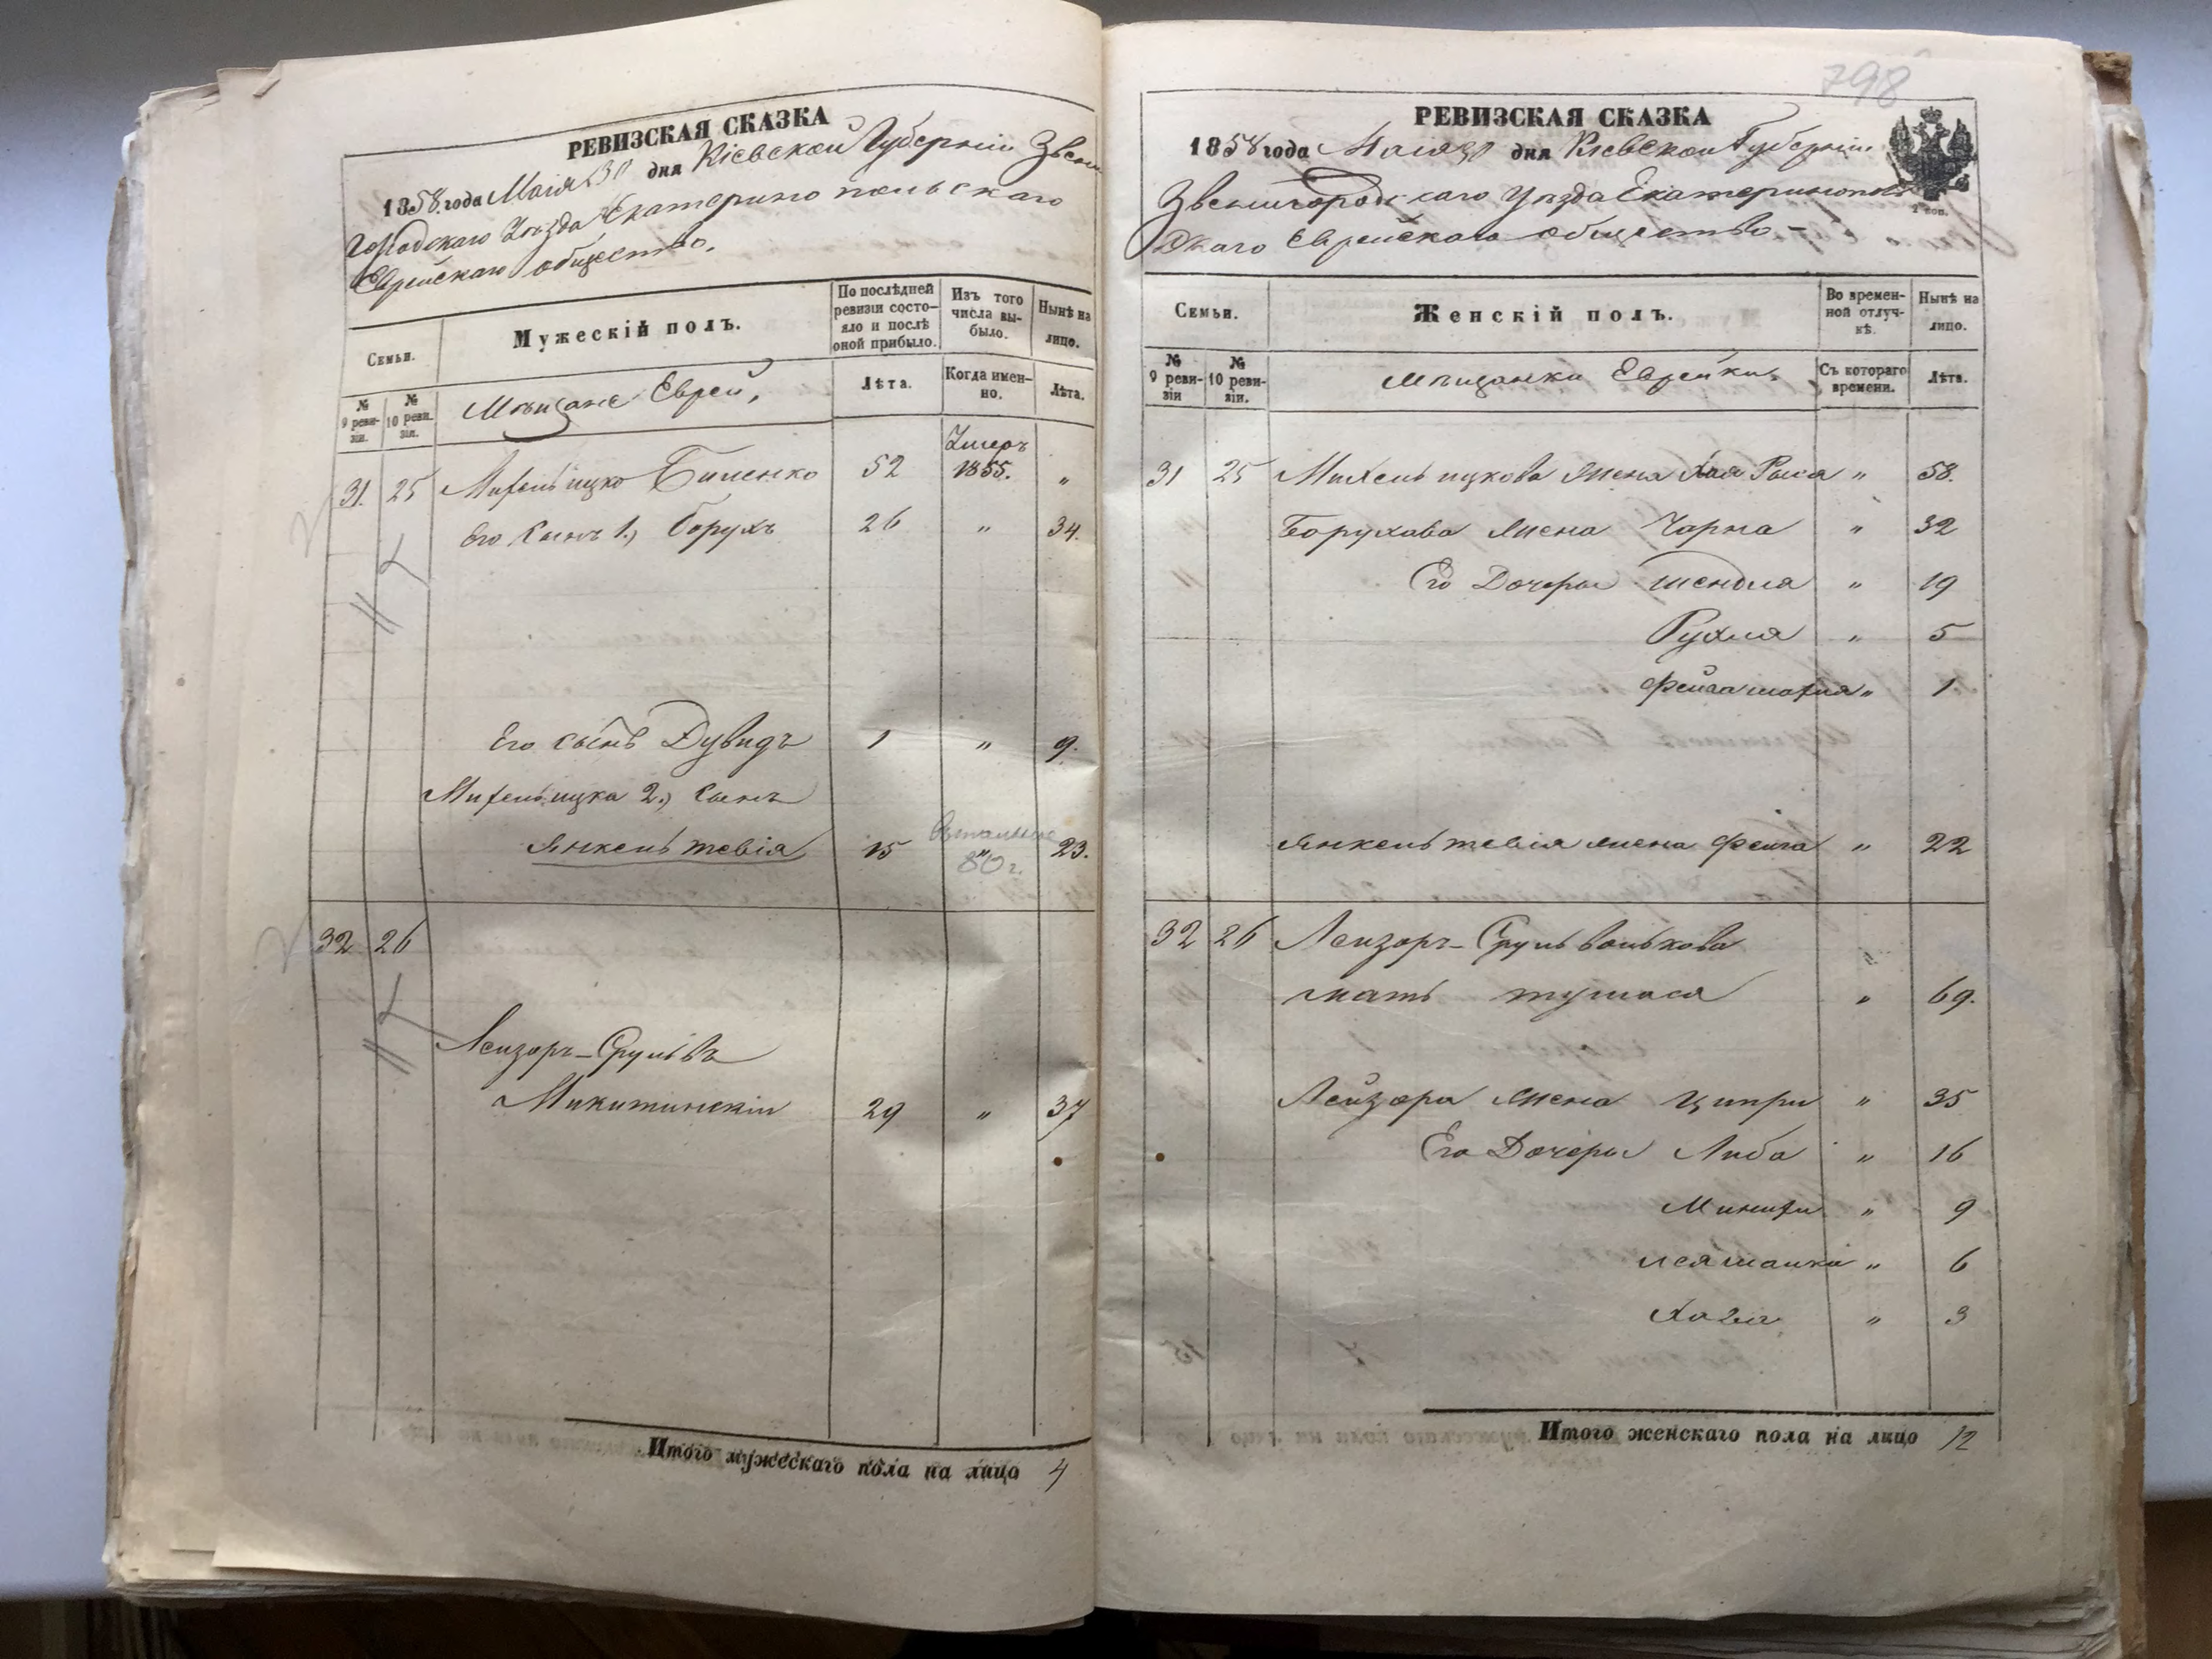 РЕВИЗСКАЯ СКАЗКА
1858 года Маія 30 дня Кіевской Губерніи Звени
городскаго Уѣзда Екатеринопольскаго
Еврейскаго общества.
Семьи.
Мужескій полъ.
По послѣдней ревизіи состояло и послѣ оной прибыло.
Изъ того числа выбыло.
Нынѣ на лицо.
№ 9 ревизіи.
№ 10 ревизіи.
Мѣщане Евреи,
Лѣта.
Когда именно.
Лѣта.
31. 25 Михель ицко Биленко 52 Умеръ 1855. "
Его Сынъ 1.) Борухъ 26 " 34.
Его сынъ Дувидъ 1 " 9.
Михель ицка 2.) Сынъ
Янкель тевія 15 " 23.
80 г.
32 26
Лейзоръ-Срульвъ
Микитинскій 29 " 37
Итого мужескаго пола на лицо 4
798
РЕВИЗСКАЯ СКАЗКА
1858 года Маія 30 дня Кіевской Губерніи
Звенигородскаго Уѣзда Екатеринополь
скаго Еврейскаго общества
Семьи.
Женскій полъ.
Во временной отлучкѣ.
Нынѣ на лицо.
№ 9 ревизіи
№ 10 ревизіи.
Мѣщанки Еврейки.
Съ котораго времени.
Лѣта.
31 25 Михель ицкова жена Хая Рыся " 58.
Борухова жена Чарна " 32
Его Дочеры Шендля " 19
Рухля " 5
Фейга " 1
Янкель тевія жена Фейга " 22
32 26 Лейзоръ-Сруль волькова "
мать " 69.
Лейзора жена Ципри " 35
Его Дочеры Либа " 16
Минихи " 9
" 6
" 3
Итого женскаго пола на лицо 12